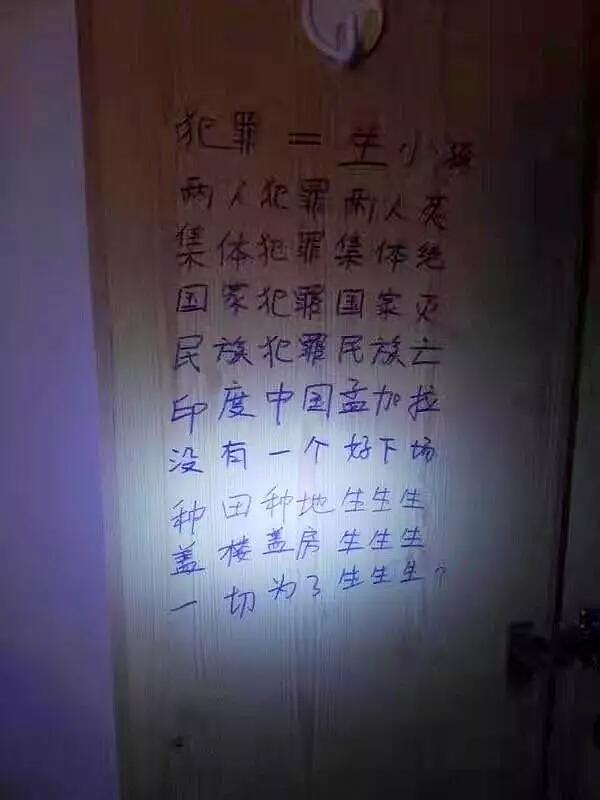 犯罪=生小孩
两人犯罪两人死
集体犯罪集体绝
国家犯罪国家灭
民族犯罪民族亡
印度中国孟加拉
没有一个好下场
种田种地生生生
盖楼盖房生生生
一切为了生生生